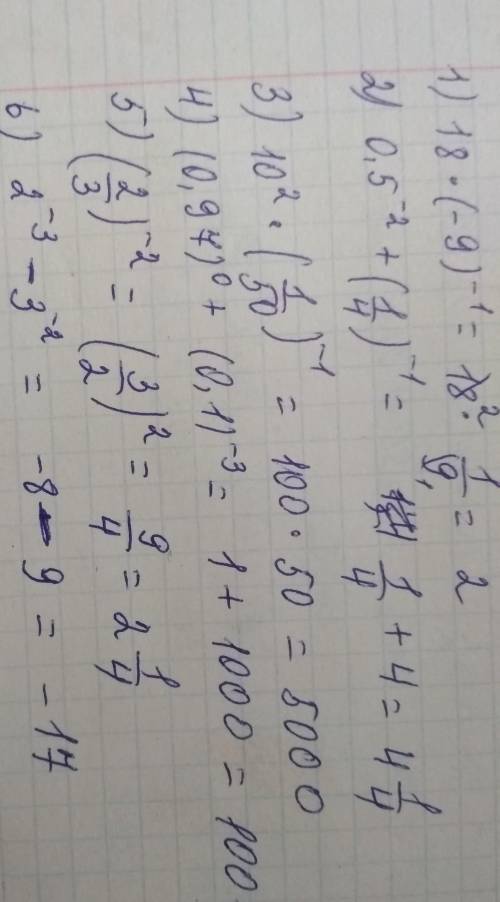 1) 18 · (-9)⁻¹ = 18² · 1/9, = 2
2) 0,5⁻² + (1/4)⁻¹ = 1/4 + 4 = 4 1/4
3) 10² · (1/50)⁻¹ = 100 · 50 = 5000
4) (0,97)⁰ + (0,1)⁻³ = 1 + 1000 = 100
5) (2/3)⁻² = (3/2)² = 9/4 = 2 1/4
6) 2⁻³ - 3⁻² = -8 - 9 = -17